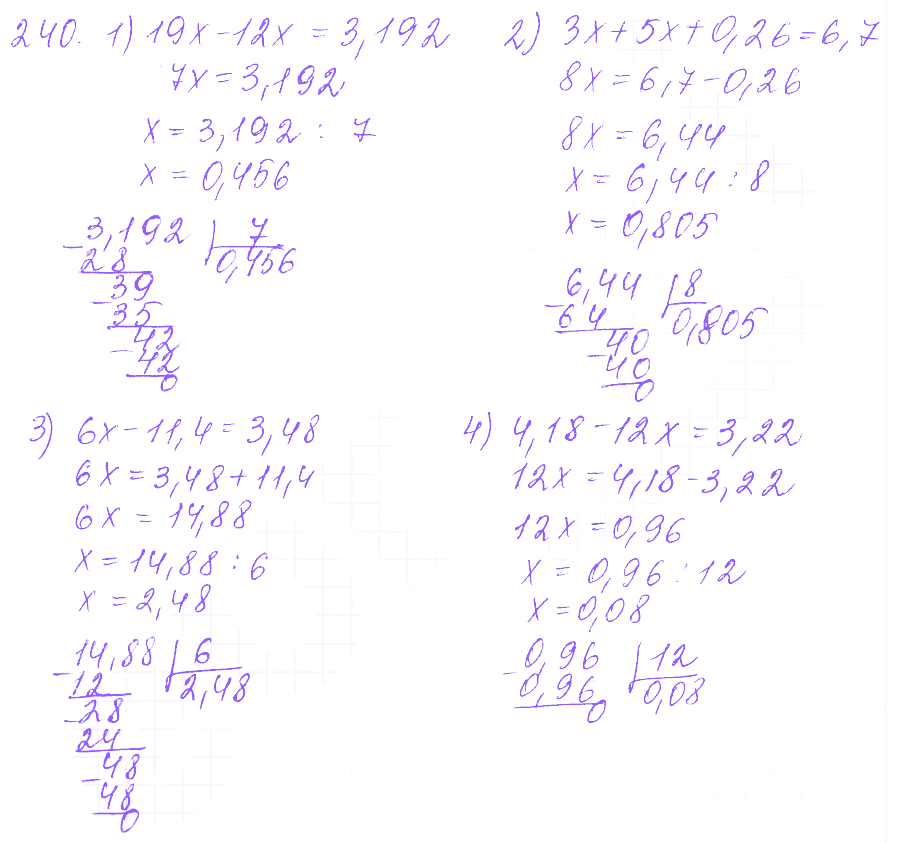 240. 1) 19x-12x = 3,192
7x = 3,192
x = 3,192 : 7
x = 0,456
3,192 7
- 28 0,456
39
- 35
42
- 42
0
2) 3x+5x+0,26=6,7
8x = 6,7-0,26
8x = 6,44
x = 6,44:8
x = 0,805
6,44 8
- 64 0,805
40
- 40
0
3) 6x-11,4 = 3,48
6x = 3,48+11,4
6x = 14,88
x = 14,88 : 6
x = 2,48
14,88 6
- 12 2,48
- 28
24
48
- 48
0
4) 4,18-12x = 3,22
12x = 4,18-3,22
12x = 0,96
x = 0,96 : 12
x = 0,08
0,96 12
- 0,96 0,08
0